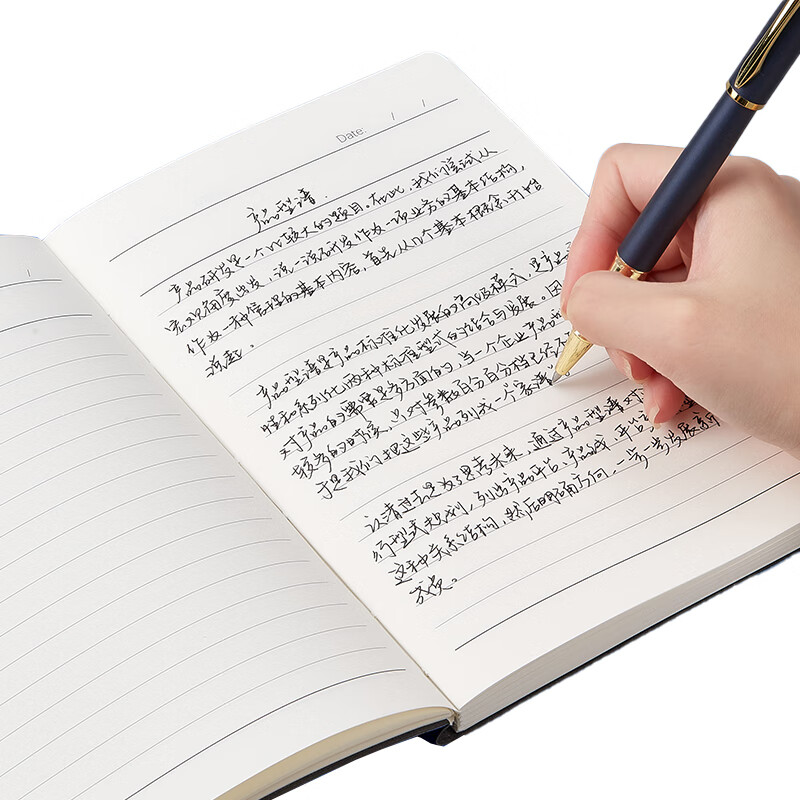 Date: / /
产品型谱.
产品研发是一个比较大的题目。在此,我们尝试从
宏观角度出发,说一说研发作为一项业务的基本结构,
作为一种管理的基本内容,首先从几个基本概念开始
说起。
产品型谱是产品标准化发展的高级模式,是产品
性和系列化两种标准型式的结合与发展。因
对产品的需常是多方面的,当一个企业产品
较多的时候,只对参数百分百分档已经不
于是我们把这些产品列成一个家谱。
认清过去是为了思考未来,通过产品型谱对
行型式规划,列出产品平台、产品线、平台
这种关系结构,然后明确方向,一步一步发展新
成员。